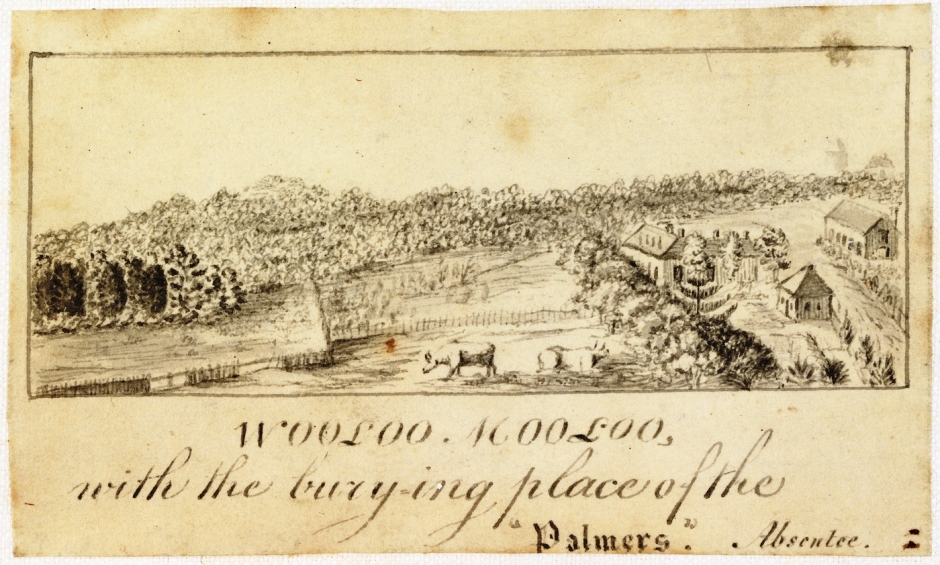 WOOLOO. MOOLOO,
with the bury-ing place of the
"Palmers". Absentee.